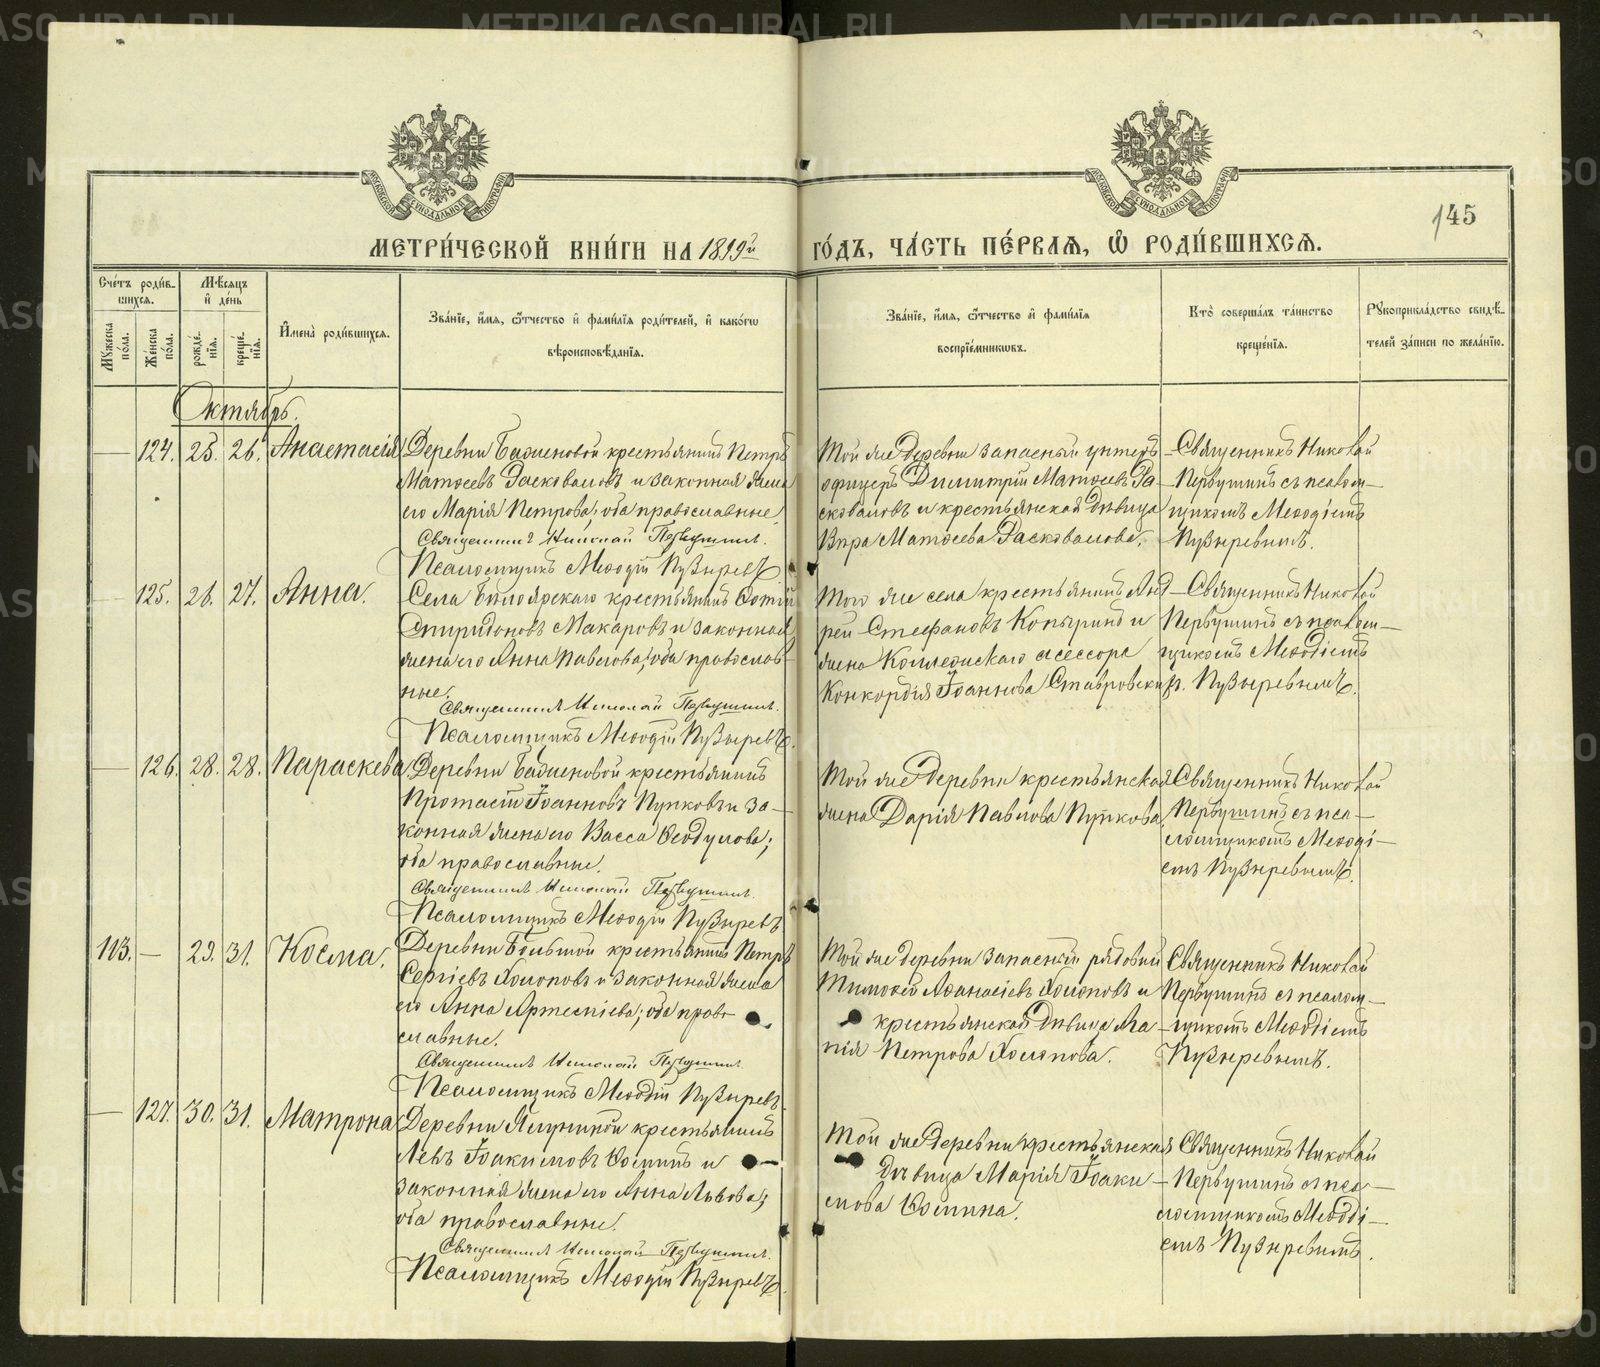 145
МЕТРИ́ЧЕСКОЙ КНИ́ГИ НА 1899й ГО́ДЪ, ЧА́СТЬ ПЕ́РВАѦ, Ѡ҆ РОДИ́ВШИХСѦ.
Сче́тъ роди́в-
шихсѧ.
Мꙋ́жеска по́ла.
Же́нска по́ла.
Мѣ́сѧцъ
и҆ де́нь
рожде́-
нїѧ.
креще́-
нїѧ.
И҆мена̀ роди́вшихсѧ.
Зва́нїе, и҆́мѧ, ѻ҆́тчество и҆ фами́лїѧ роди́телей, и҆ како́гѡ
вѣроисповѣ́данїѧ.
Зва́нїе, и҆́мѧ, ѻ҆́тчество и҆ фами́лїѧ
воспрїе́мникѡвъ.
Кто̀ соверша́лъ та́инство
креще́нїѧ.
Рꙋкоприкла́дство свидѣ́-
телей за́писи по жела́нїю.
Октябрь.
— 124. 25. 26. Анастасія
Деревни Баженовой крестьянинъ Петръ
Матѳеевъ Расковаловъ и законная жена
его Марія Петрова; оба православные.
Священникъ Николай Первушинъ.
Псаломщикъ Меѳодій Пузыревъ.
Той же деревни запасный унтеръ-
офицеръ Димитрій Матѳеевъ Ра-
сковаловъ и крестьянская дѣвица
Вѣра Матѳеева Расковалова.
Священникъ Николай
Первушинъ съ псалом-
щикомъ Меѳодіемъ
Пузыревымъ.
— 125. 26. 27. Анна.
Села Бѣлоярскаго крестьянинъ Фотій
Спиридоновъ Макаровъ и законная
жена его Анна Павлова; оба православ-
ные.
Священникъ Николай Первушинъ.
Псаломщикъ Меѳодій Пузыревъ.
Того же села крестьянинъ Анд-
рей Стефановъ Копыринъ и
жена Коллежскаго асессора
Конкордія Іоаннова Ставровская.
Священникъ Николай
Первушинъ съ псалом-
щикомъ Меѳодіемъ
Пузыревымъ.
— 126. 28. 28. Параскева.
Деревни Баженовой крестьянинъ
Протасій Іоанновъ Пупковъ и за-
конная жена его Васса Ѳеодулова;
оба православные.
Священникъ Николай Первушинъ.
Псаломщикъ Меѳодій Пузыревъ
Той же деревни крестьянская
жена Дарія Павлова Пупкова.
Священникъ Николай
Первушинъ съ пса-
ломщикомъ Меѳоді-
емъ Пузыревымъ.
113. — 29. 31. Косма.
Деревни Большой крестьянинъ Петръ
Сергіевъ Холоповъ и законная жена
его Анна Артеміева; оба право-
славные.
Священникъ Николай Первушинъ.
Псаломщикъ Меѳодій Пузыревъ.
Той же деревни запасный рядовой
Тимоѳей Аѳанасіевъ Холоповъ и
крестьянская дѣвица Ага-
пія Петрова Холопова.
Священникъ Николай
Первушинъ съ псалом-
щикомъ Меѳодіемъ
Пузыревымъ.
— 127. 30. 31. Матрона
Деревни Ялуниной крестьянинъ
Левъ Іоакимовъ Ѳоминъ и
законная жена его Анна Львова;
оба православные.
Священникъ Николай Первушинъ.
Псаломщикъ Меѳодій Пузыревъ.
Той же деревни крестьянская
дѣвица Марія Іоаки-
мова Ѳомина.
Священникъ Николай
Первушинъ съ пса-
ломщикомъ Меѳоді-
емъ Пузыревымъ.